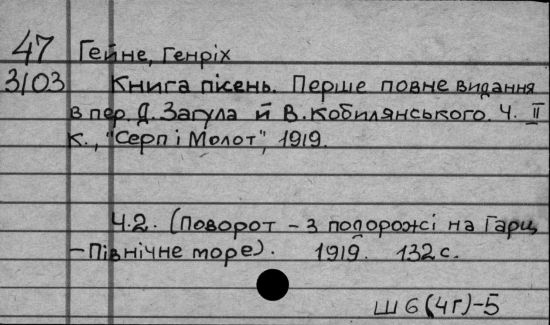 47 Гейне, Генріх
3/03 Книга пісень. Перше повне видання
в пер. Д. Загула й В. Кобилянського. Ч. II
К., "Серп і Молот", 1919.
Ч.2. (Поворот – З подорожі на Гарц
– Північне море). 1919. 132 с.
Ш6(4Г)-5